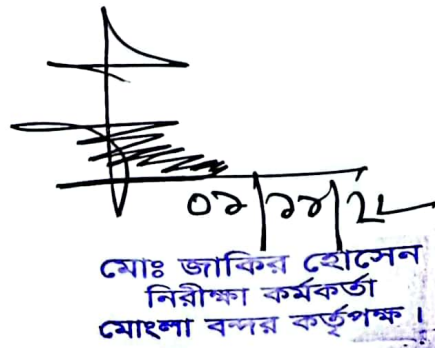 মোঃ জাকির হোসেন
নিরীক্ষা কর্মকর্তা
মোংলা বন্দর কর্তৃপক্ষ।